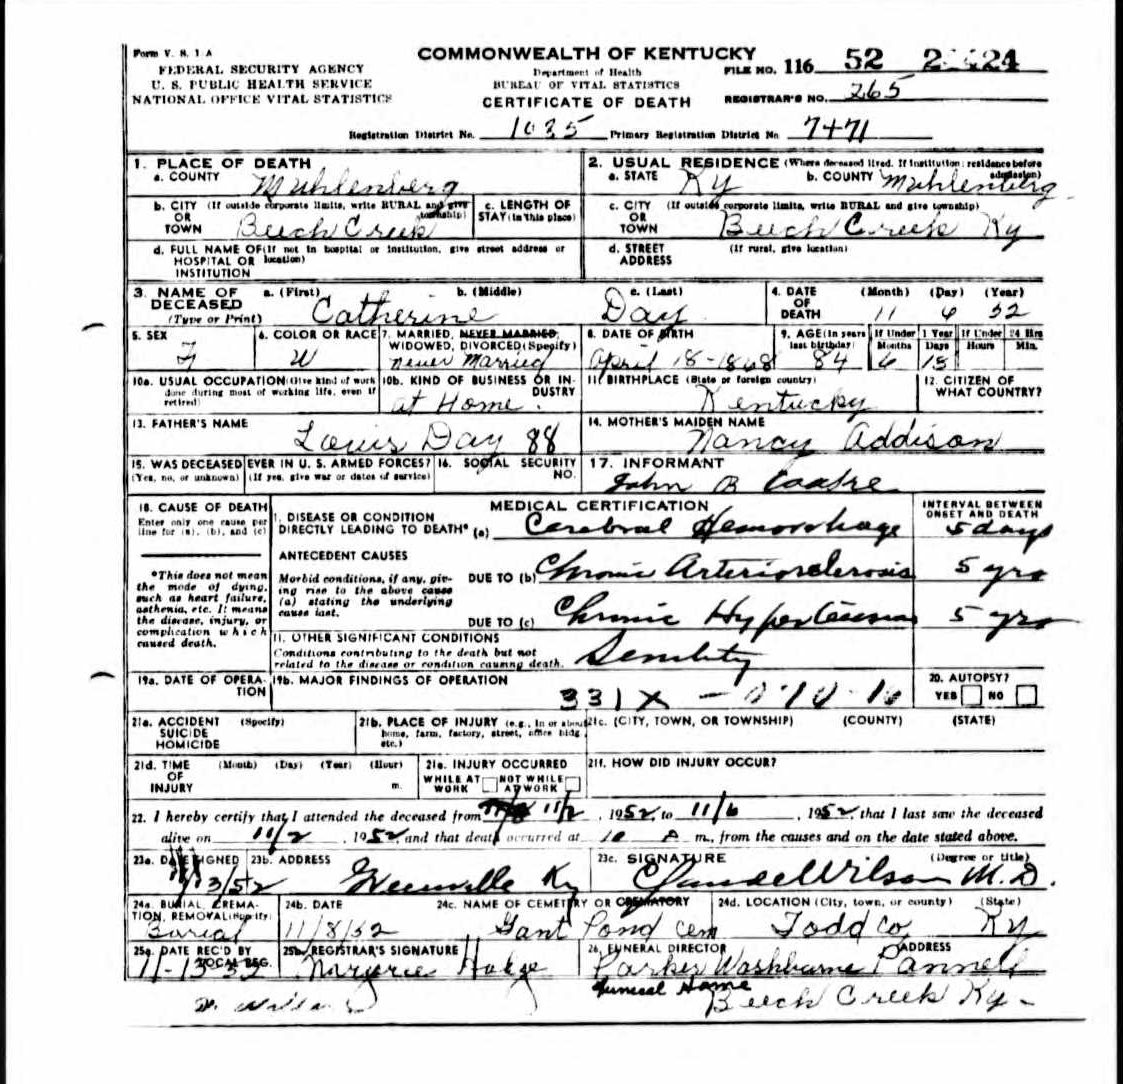 Form V. S. 1 A
FEDERAL SECURITY AGENCY
U. S. PUBLIC HEALTH SERVICE
NATIONAL OFFICE VITAL STATISTICS
COMMONWEALTH OF KENTUCKY
Department of Health
BUREAU OF VITAL STATISTICS
CERTIFICATE OF DEATH
FILE NO. 116 52
REGISTRAR'S NO. 265
Registration District No. 1035 Primary Registration District No 7471
1. PLACE OF DEATH
a. COUNTY Muhlenberg
2. USUAL RESIDENCE (Where deceased lived. If institution: residence before admission)
a. STATE Ky b. COUNTY Muhlenberg
b. CITY OR TOWN (If outside corporate limits, write RURAL and give township) Beech Creek
c. LENGTH OF STAY (in this place)
c. CITY OR TOWN (If outside corporate limits, write RURAL and give township) Beech Creek Ky
d. FULL NAME OF HOSPITAL OR INSTITUTION (If not in hospital or institution, give street address or location)
d. STREET ADDRESS (If rural, give location)
3. NAME OF DECEASED (Type or Print) a. (First) Catherine b. (Middle) c. (Last) Day
4. DATE OF DEATH (Month) (Day) (Year) 11 6 52
5. SEX F
6. COLOR OR RACE W
7. MARRIED, NEVER MARRIED, WIDOWED, DIVORCED (Specify) never Married
8. DATE OF BIRTH April 18-1868
9. AGE (In years last birthday) 84 If Under 1 Year Months 6 Days 18 If Under 24 Hrs Hours Min.
10a. USUAL OCCUPATION (Give kind of work done during most of working life, even if retired)
10b. KIND OF BUSINESS OR INDUSTRY at Home.
11. BIRTHPLACE (State or foreign country) Kentucky
12. CITIZEN OF WHAT COUNTRY?
13. FATHER'S NAME Louis Day 88
14. MOTHER'S MAIDEN NAME Nancy Addison
15. WAS DECEASED EVER IN U. S. ARMED FORCES? (Yes, no, or unknown) (If yes, give war or dates of service)
16. SOCIAL SECURITY NO.
17. INFORMANT John B
18. CAUSE OF DEATH
Enter only one cause per line for (a), (b), and (c)
*This does not mean the mode of dying, such as heart failure, asthenia, etc. It means the disease, injury, or complication which caused death.
MEDICAL CERTIFICATION
INTERVAL BETWEEN ONSET AND DEATH
I. DISEASE OR CONDITION DIRECTLY LEADING TO DEATH* (a) Cerebral Hemorrhage 5 days
ANTECEDENT CAUSES
Morbid conditions, if any, giving rise to the above cause (a) stating the underlying cause last.
DUE TO (b) Chronic Arteriosclerosis 5 yrs
DUE TO (c) Chronic Hypertension 5 yrs
II. OTHER SIGNIFICANT CONDITIONS
Conditions contributing to the death but not related to the disease or condition causing death. Senility
19a. DATE OF OPERATION
19b. MAJOR FINDINGS OF OPERATION
331X
20. AUTOPSY? YES NO
21a. ACCIDENT SUICIDE HOMICIDE (Specify)
21b. PLACE OF INJURY (e.g., in or about home, farm, factory, street, office bldg. etc.)
21c. (CITY, TOWN, OR TOWNSHIP) (COUNTY) (STATE)
21d. TIME OF INJURY (Month) (Day) (Year) (Hour) m.
21e. INJURY OCCURRED WHILE AT WORK NOT WHILE AT WORK
21f. HOW DID INJURY OCCUR?
22. I hereby certify that I attended the deceased from 11/2, 1952, to 11/6, 1952, that I last saw the deceased
alive on 11/2, 1952, and that death occurred at 10 A m., from the causes and on the date stated above.
23a. DATE SIGNED 11/13/52
23b. ADDRESS Greenville Ky
23c. SIGNATURE (Degree or title) Claude Wilson M.D.
24a. BURIAL, CREMATION, REMOVAL (Specify) Burial
24b. DATE 11/8/52
24c. NAME OF CEMETERY OR CREMATORY Gant Pond Cem
24d. LOCATION (City, town, or county) (State) Todd Co, Ky
25a. DATE REC'D BY LOCAL REG. 11-13-52
25b. REGISTRAR'S SIGNATURE
26. FUNERAL DIRECTOR ADDRESS
Parker Washburne Pannell
Funeral Home
Beech Creek Ky-